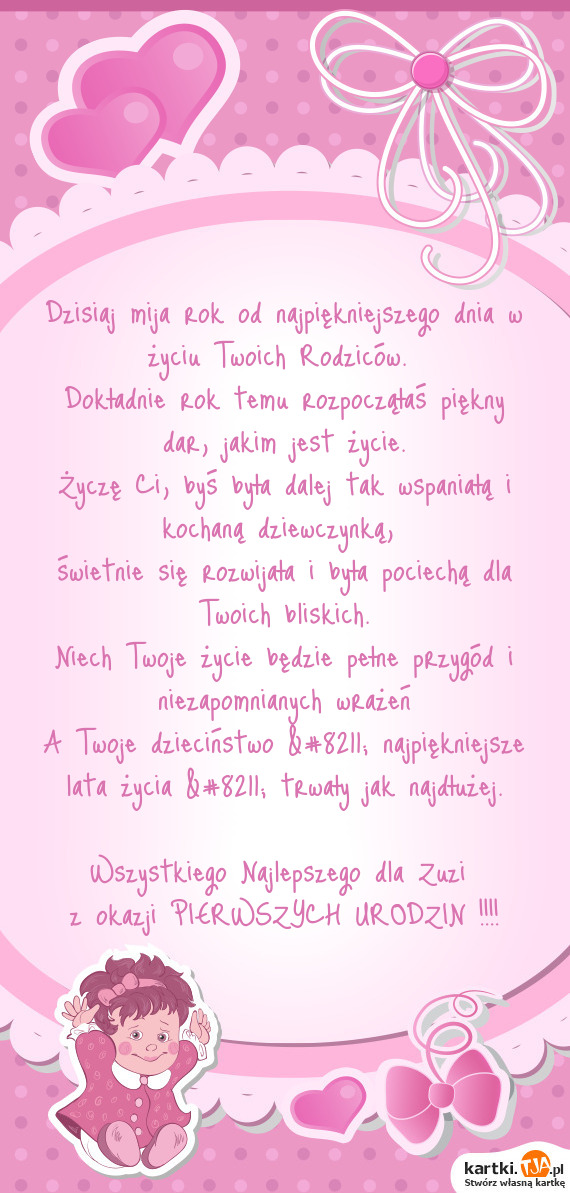 Dzisiaj mija rok od najpiękniejszego dnia w
życiu Twoich Rodziców.
Dokładnie rok temu rozpoczęłaś piękny
dar, jakim jest życie.
Życzę Ci, byś była dalej tak wspaniałą i
kochaną dziewczynką,
świetnie się rozwijała i była pociechą dla
Twoich bliskich.
Niech Twoje życie będzie pełne przygód i
niezapomnianych wrażeń
A Twoje dzieciństwo &#8211; najpiękniejsze
lata życia &#8211; trwały jak najdłużej.
Wszystkiego Najlepszego dla Zuzi
z okazji PIERWSZYCH URODZIN !!!!
kartki.TJA.pl
Stwórz własną kartkę